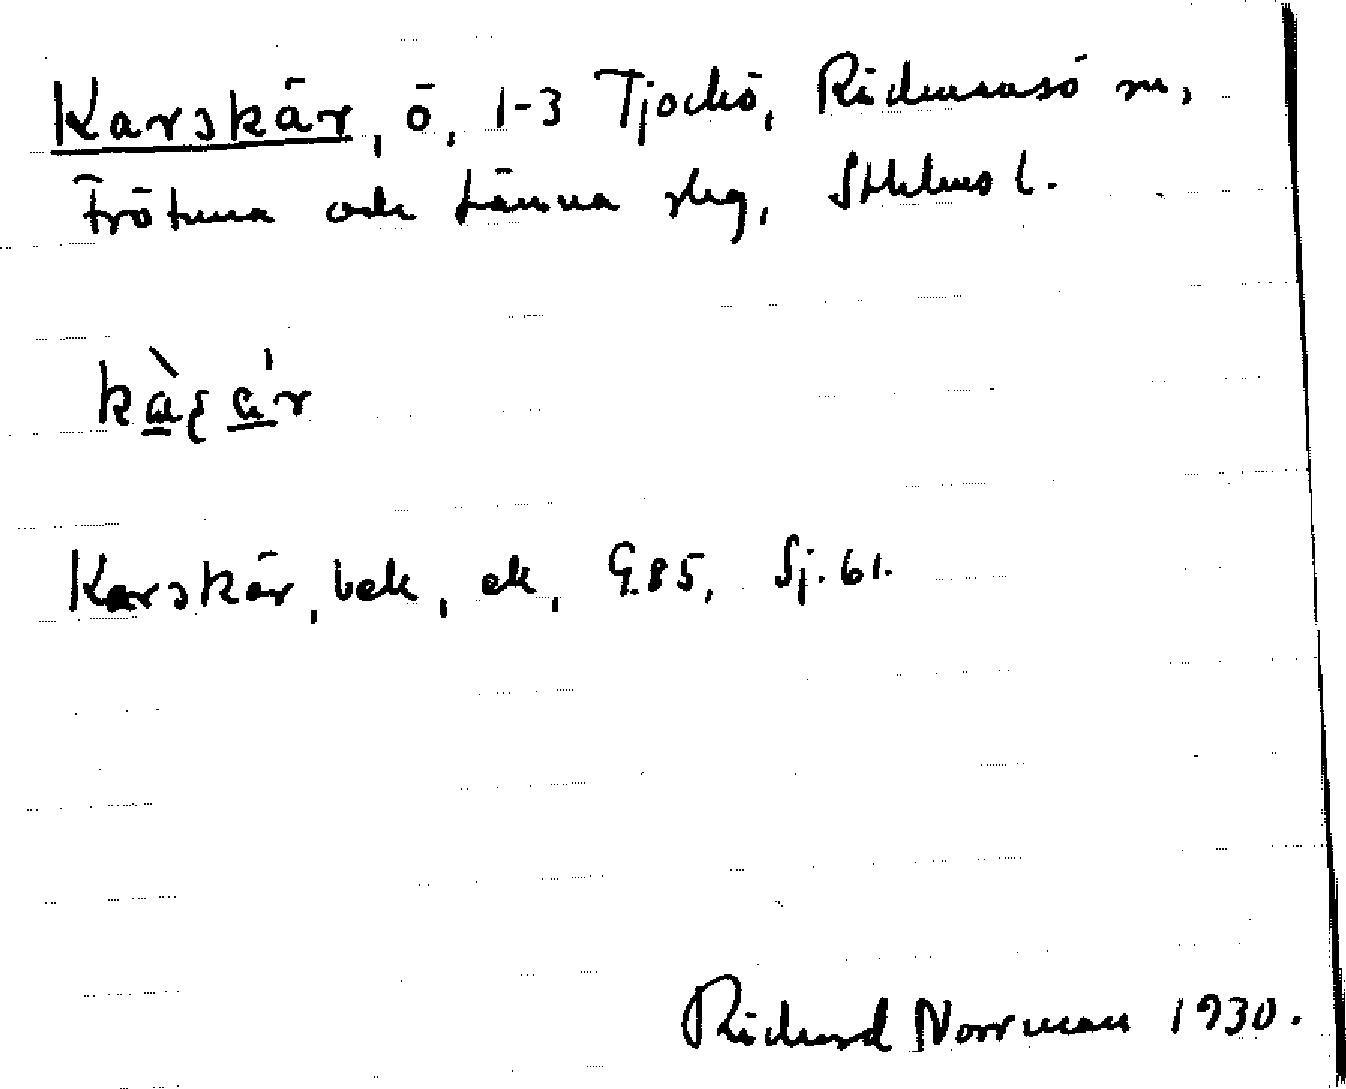 Karskär, ö, 1-3 Tjockö, Rådmansö sn,
Frötuna och Länna skg, Sthlms l.
Karskär, bek, ek, G.85, Sj. 61.
Richard Norrman 1930.